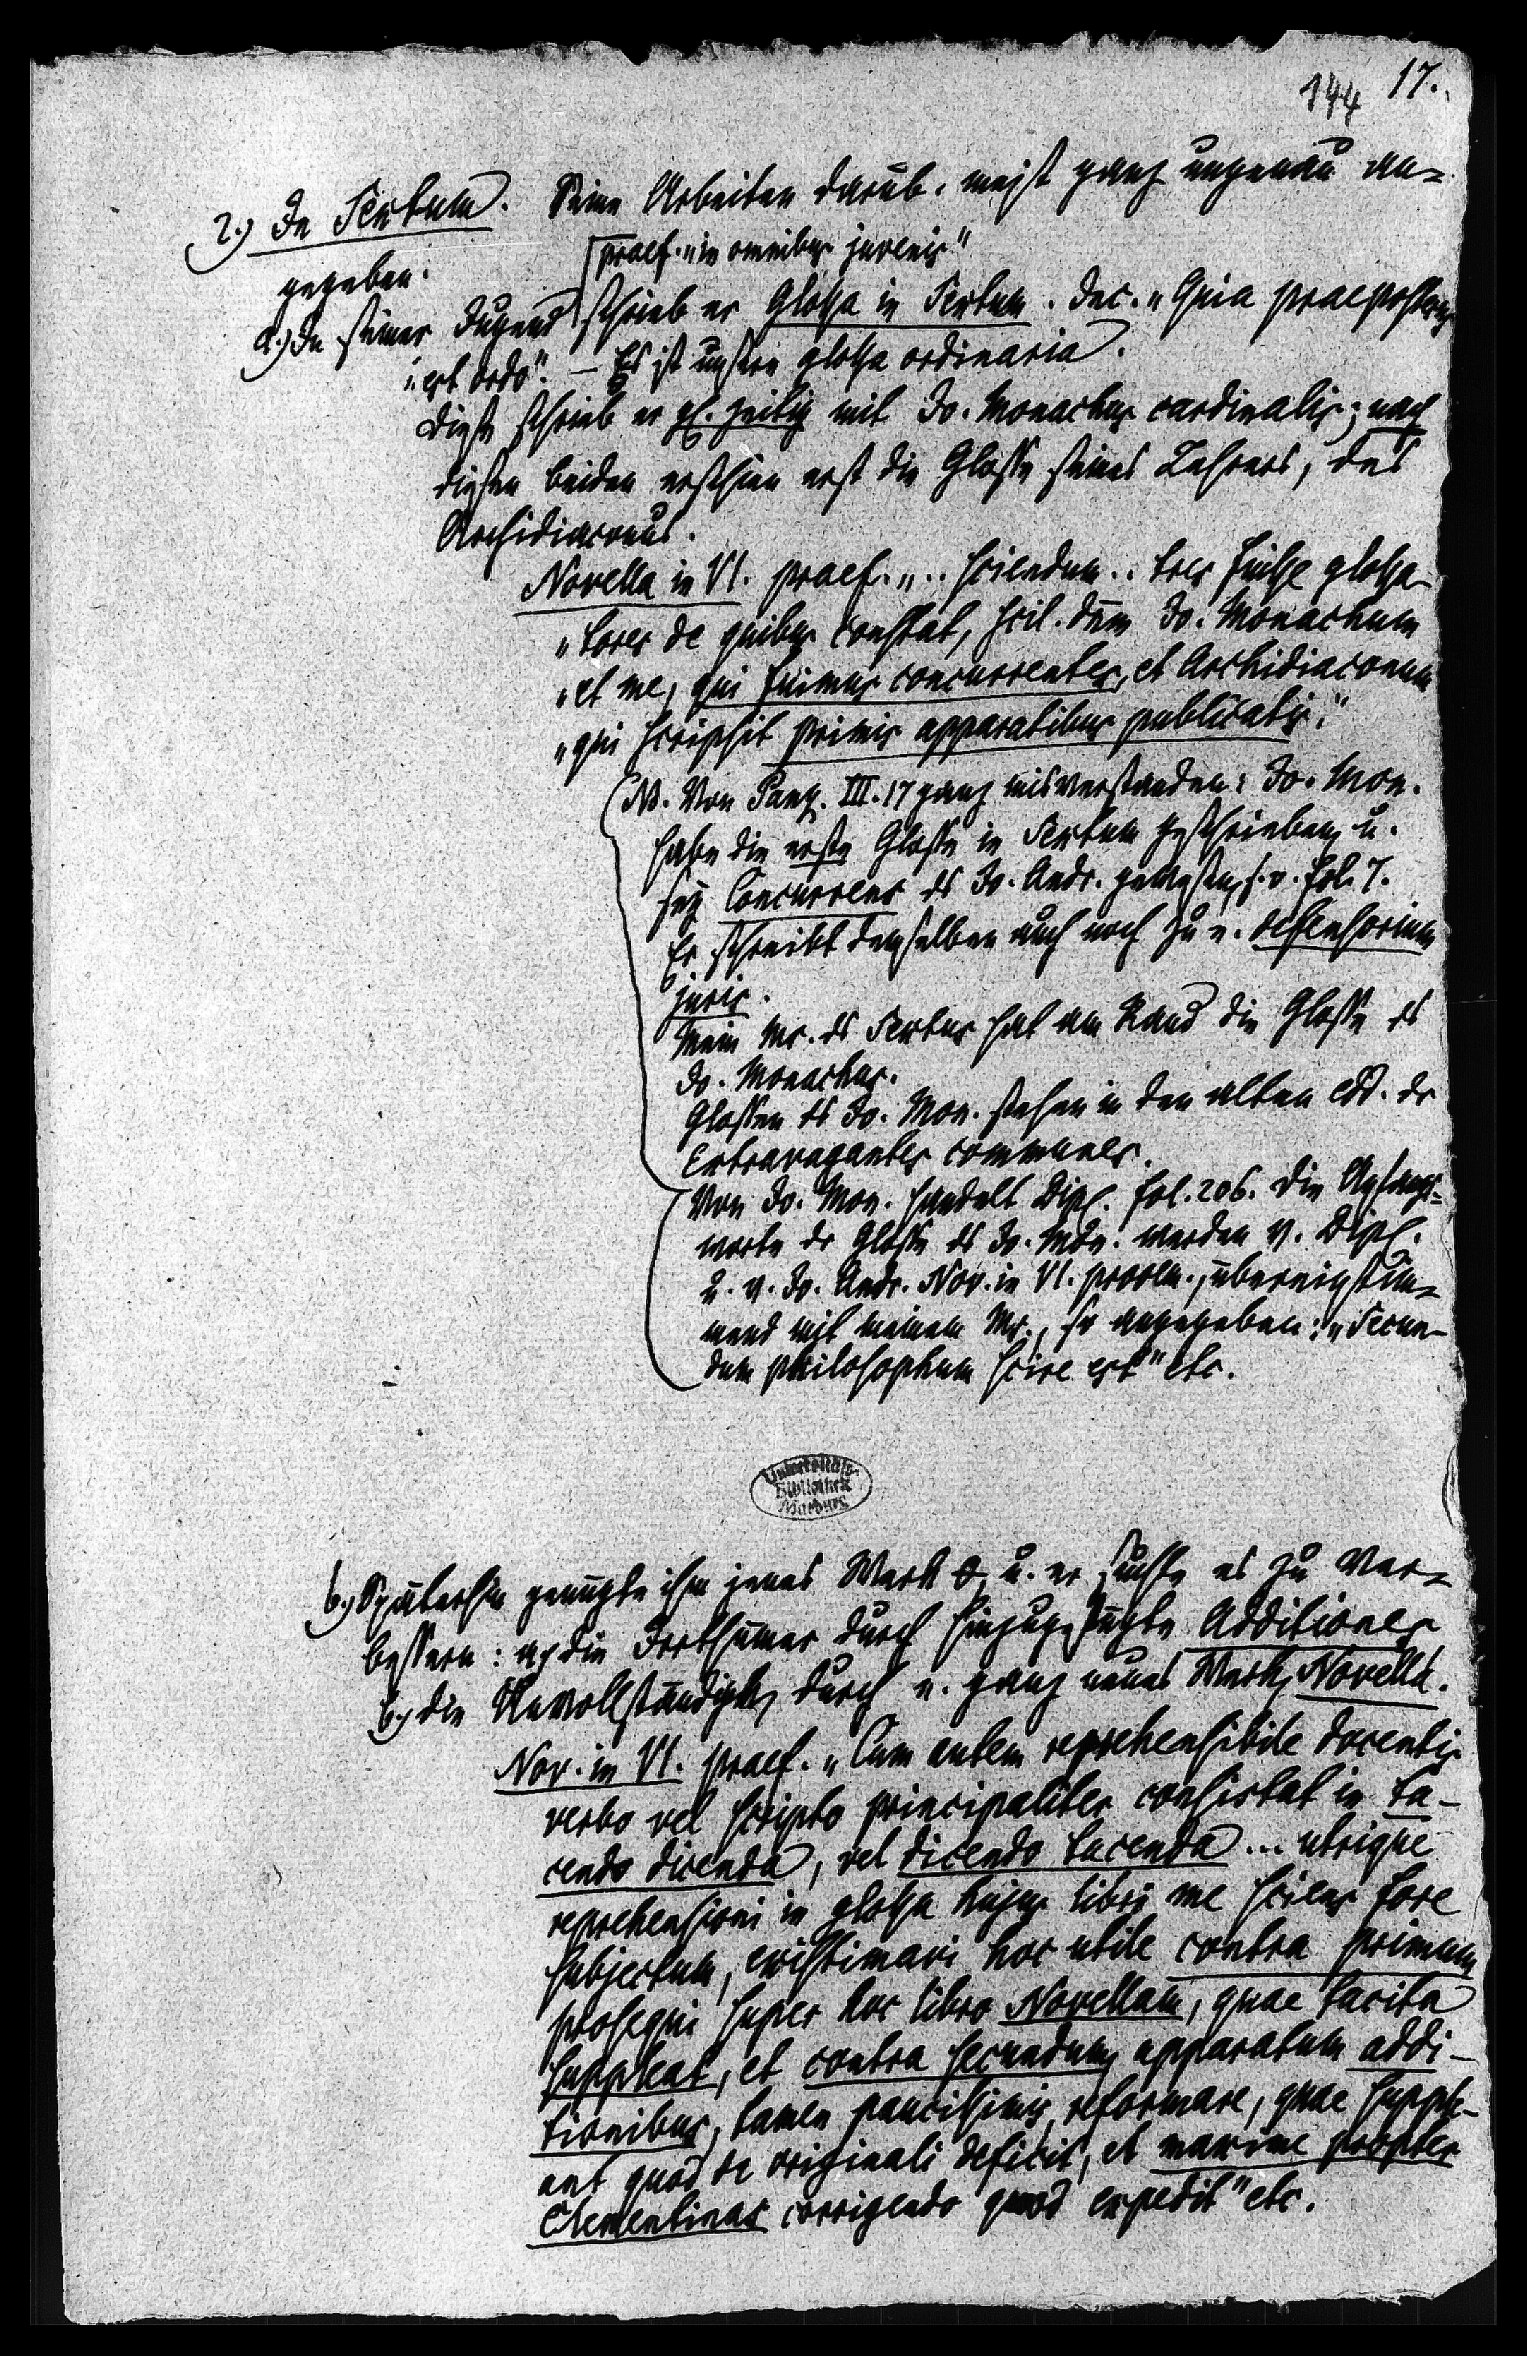 144 17.
2.) In Sextum. Seine Arbeiten darüb. meist ganz ungenau an-
gegeben.
praef. "in omnibus juvenis"
a.) In seiner Jugend schrieb er Glossa in Sextum. Inc. "Quia praeposterus
"est ordo". – Es ist unsere glossa ordinaria.
Diese schrieb er gl. zeitig mit Jo. Monachus cardinalis; nach
diesen beiden erschien erst die Glosse seines Lehrers, des
Archidiaconus.
Novella in VI. praef. ".. sciendum .. tres fuisse glossa-
"tores de quibus constat, scil. dum Jo. Monachum
"et me, qui fuimus concurrentes, et Archidiaconum
"qui scripsit primis apparatibus publicatis."
NB. Von Panz. III. 17 ganz misverstanden: Jo. Mon.
habe die erste Glosse in Sextum geschrieben u.
sey Concurrens ds Jo. Andr. gewesen, s. v. fol. 7.
Er schreibt demselben auch noch zu e. defensorium
juris.
Mein Mc. ds Sextus hat am Rand die Glosse ds
Jo. Monachus.
Glossen ds Jo. Mon. stehen in den alten edd. dr
Extravagantes communes.
Von Jo. Mon. handelt Dipl. fol. 206. Die Anfangs-
worte dr Glosse ds Jo. Mon. werden v. Dipl.
u. v. Jo. Andr. Nov. in VI. prooem., übereinstim-
mend mit meinem Mc., so angegeben: "Secun-
dum philosophum scire est" etc.
Universitäts-
Bibliothek
Marburg
b.) Späterhin genügte ihm jenes Werk u. er suchte es zu ver-
bessern: a, die Irrthümer durch hinzugefügte Additiones
b, die Unvollständigk, durch e. ganz neues Werk, Novella.
Nov. in VI. praef. "Cum autem reprehensibile docentis
verbo vel scripto principaliter consistat in ta-
cendo dicenda, vel dicendo tacenda ... utrique
reprehensioni in glossa hujus libri me sciens fore
subjectum, existimavi hoc utile contra primum
prosequi super hoc libro Novellam, quae tacita
suppleat, et contra secundum apparatum addi-
tionibus, tamen paucissimis, reformare, quae supple-
ant quod de originali deficit, et maxime propter
Clementinas corrigendo quod expedit" etc.